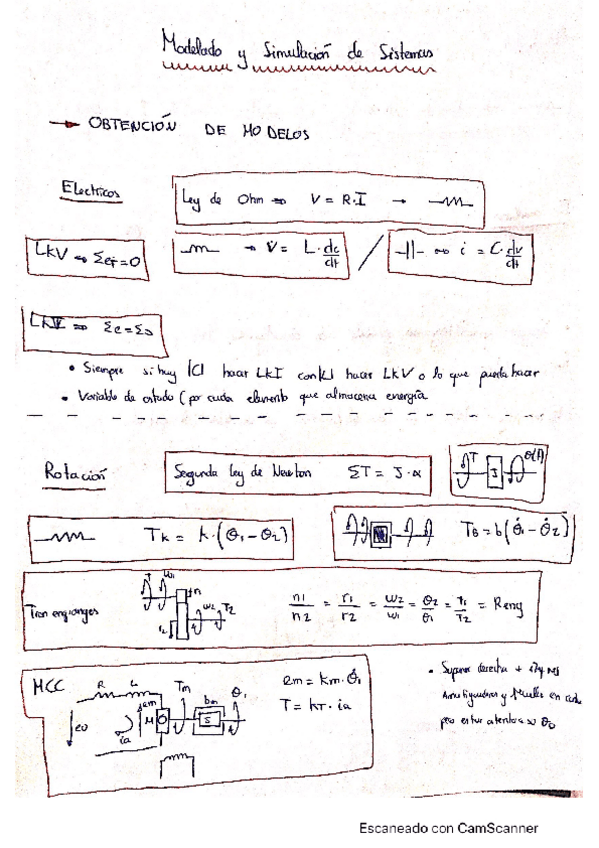 Modelado y Simulación de Sistemas
→ OBTENCIÓN DE MODELOS
Electricos
Ley de Ohm ⇒ V = R·I →
LKV ⇒ Σei=0
→ V = L·di/dt / ⇒ i = C·dv/dt
LKI ⇒ Σe=Σs
• Siempre si hay |C| hacer LKI con |L| hacer LKV o lo que pueda hacer
• Variable de estado (por cada elemento que almacena energía
Rotación
Segunda Ley de Newton ΣT = J·α
T J θ(t)
TK = K·(θ1-θ2)
TB = b(θ̇1-θ̇2)
Tren engranges
T1 w1 n1 r2 w2 T2
n1/n2 = r1/r2 = w2/w1 = θ2/θ1 = T1/T2 = Reng
MCC
R L em Tm bm θ1
ea ia M J
em = Km·θ̇1
T = KT·ia
• Suponer derecha +
Amortiguadores y Muelles en cada
pero estar atentos
Escaneado con CamScanner